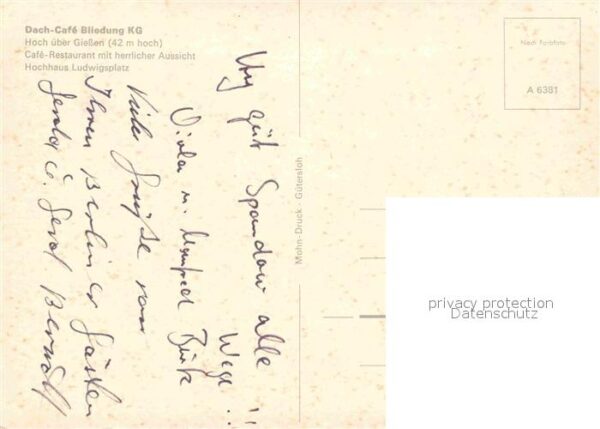 Dach-Café Bliedung KG
Hoch über Gießen (42 m hoch)
Café-Restaurant mit herrlicher Aussicht
Hochhaus Ludwigsplatz
Nach Farbfoto
A 6381
Mohn-Druck · Gütersloh
güt Spandow alle
Wege !!
Manfred
Viele Grüße von
Ihren Berliner Gästen
Gerda u. Gerd
privacy protection
Datenschutz